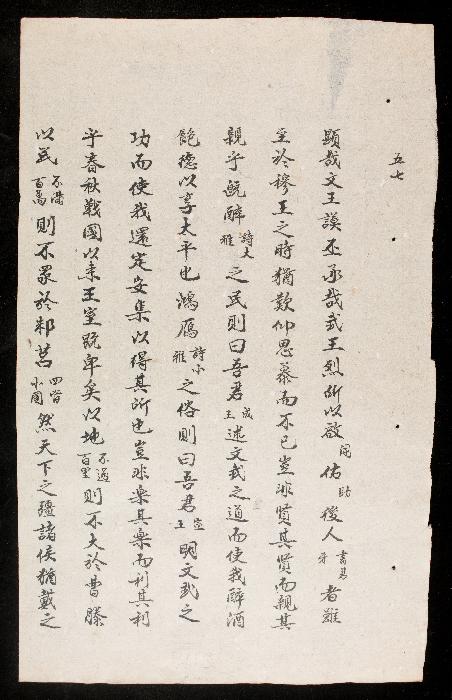 五七
顯哉文王謨丕承哉武王烈所以啟開佑助後人書君牙者雖
至於穆王之時猶歎仰思慕而不已豈非賢其賢而親其
親乎既醉詩大雅之民則曰吾君成王述文武之道而使我醉酒
飽德以享太平也鴻鴈詩小雅之俗則曰吾君宣王明文武之
功而使我還定安集以得其所也豈非樂其樂而利其利
乎春秋戰國以来王室既卑矣以地不過百里則不大於曹滕
以民不滿百萬則不衆於邾莒四皆小國然天下之疆諸侯猶戴之